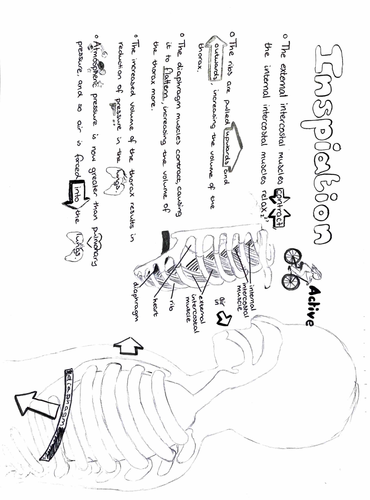 Inspiation
Active
o The external intercostal muscles contract and
the internal intercostal muscles relax.
o The ribs are pulled upwards and
outwards, increasing the volume of the
thorax.
o The diaphragm muscles contract, causing
it to flatten, increasing the volume of
the thorax more.
o The increased volume of the thorax results in
reduction of pressure in the lungs.
o Atmospheric pressure is now greater than pulmonary
pressure, and so air is forced into the lungs
air
in
internal
intercostal
muscle
external
intercostal
muscle
rib
heart
diaphragm